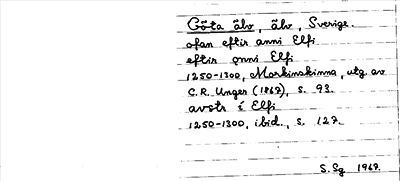 Göta älv, älv, Sverige.
ofan eftir anni Elfi
eftir ǫnni Elfi
1250-1300, Morkinskinna, utg. av
C.R. Unger (1867), s. 93.
avstr í Elfi
1250-1300, ibid., s. 127.
S. Sg 1967.